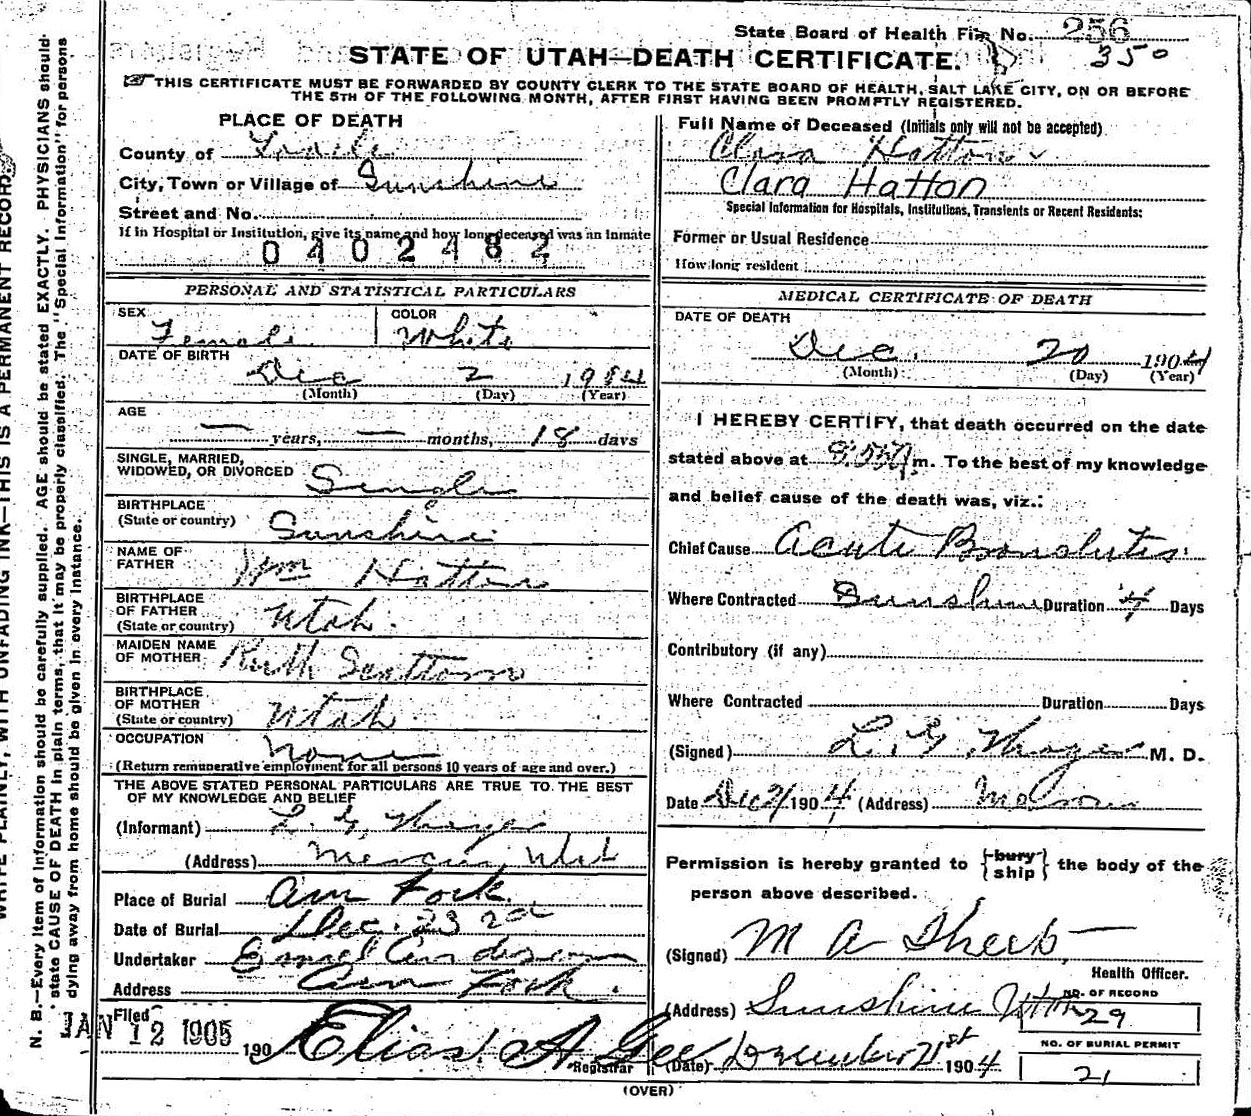 State Board of Health File No. 256
350
STATE OF UTAH—DEATH CERTIFICATE.
THIS CERTIFICATE MUST BE FORWARDED BY COUNTY CLERK TO THE STATE BOARD OF HEALTH, SALT LAKE CITY, ON OR BEFORE
THE 5TH OF THE FOLLOWING MONTH, AFTER FIRST HAVING BEEN PROMPTLY REGISTERED.
PLACE OF DEATH
County of
City, Town or Village of Sunshine
Street and No.
If in Hospital or Institution, give its name and how long deceased was an inmate
0402482
Full Name of Deceased (Initials only will not be accepted)
Clara Hatton
Clara Hatton
Special Information for Hospitals, Institutions, Transients or Recent Residents:
Former or Usual Residence
How long resident
PERSONAL AND STATISTICAL PARTICULARS
SEX
Female
COLOR
White
DATE OF BIRTH
Dec 2 1904
(Month) (Day) (Year)
AGE
— years, — months, 18 days
SINGLE, MARRIED,
WIDOWED, OR DIVORCED Single
BIRTHPLACE
(State or country) Sunshine
NAME OF
FATHER Wm Hatton
BIRTHPLACE
OF FATHER
(State or country) Utah.
MAIDEN NAME
OF MOTHER Ruth
BIRTHPLACE
OF MOTHER
(State or country) Utah
OCCUPATION None
(Return remunerative employment for all persons 10 years of age and over.)
THE ABOVE STATED PERSONAL PARTICULARS ARE TRUE TO THE BEST
OF MY KNOWLEDGE AND BELIEF
(Informant) L. G.
(Address) Mercur, Utah
Place of Burial Am Fork.
Date of Burial Dec. 23
Undertaker Anderson
Address Am Fork.
Filed
JAN 12 1905
190 Elias A Gee
Registrar
MEDICAL CERTIFICATE OF DEATH
DATE OF DEATH
Dec. 20 1904
(Month) (Day) (Year)
I HEREBY CERTIFY, that death occurred on the date
stated above at m. To the best of my knowledge
and belief cause of the death was, viz.:
Chief Cause Acute Bronchitis
Where Contracted Sunshine Duration 4 Days
Contributory (if any)
Where Contracted Duration Days
(Signed) L. G. M. D.
Date Dec 21 1904 (Address) Mercur
Permission is hereby granted to {bury ship} the body of the
person above described.
(Signed) M A
Health Officer.
(Address) Sunshine Utah
NO. OF RECORD
29
NO. OF BURIAL PERMIT
21
(Date) December 21st 1904
(OVER)
N. B.—Every item of information should be carefully supplied. AGE should be stated EXACTLY. PHYSICIANS should
state CAUSE OF DEATH in plain terms, that it may be properly classified. The "Special Information" for persons
dying away from home should be given in every instance.
WRITE PLAINLY, WITH UNFADING INK—THIS IS A PERMANENT RECORD.